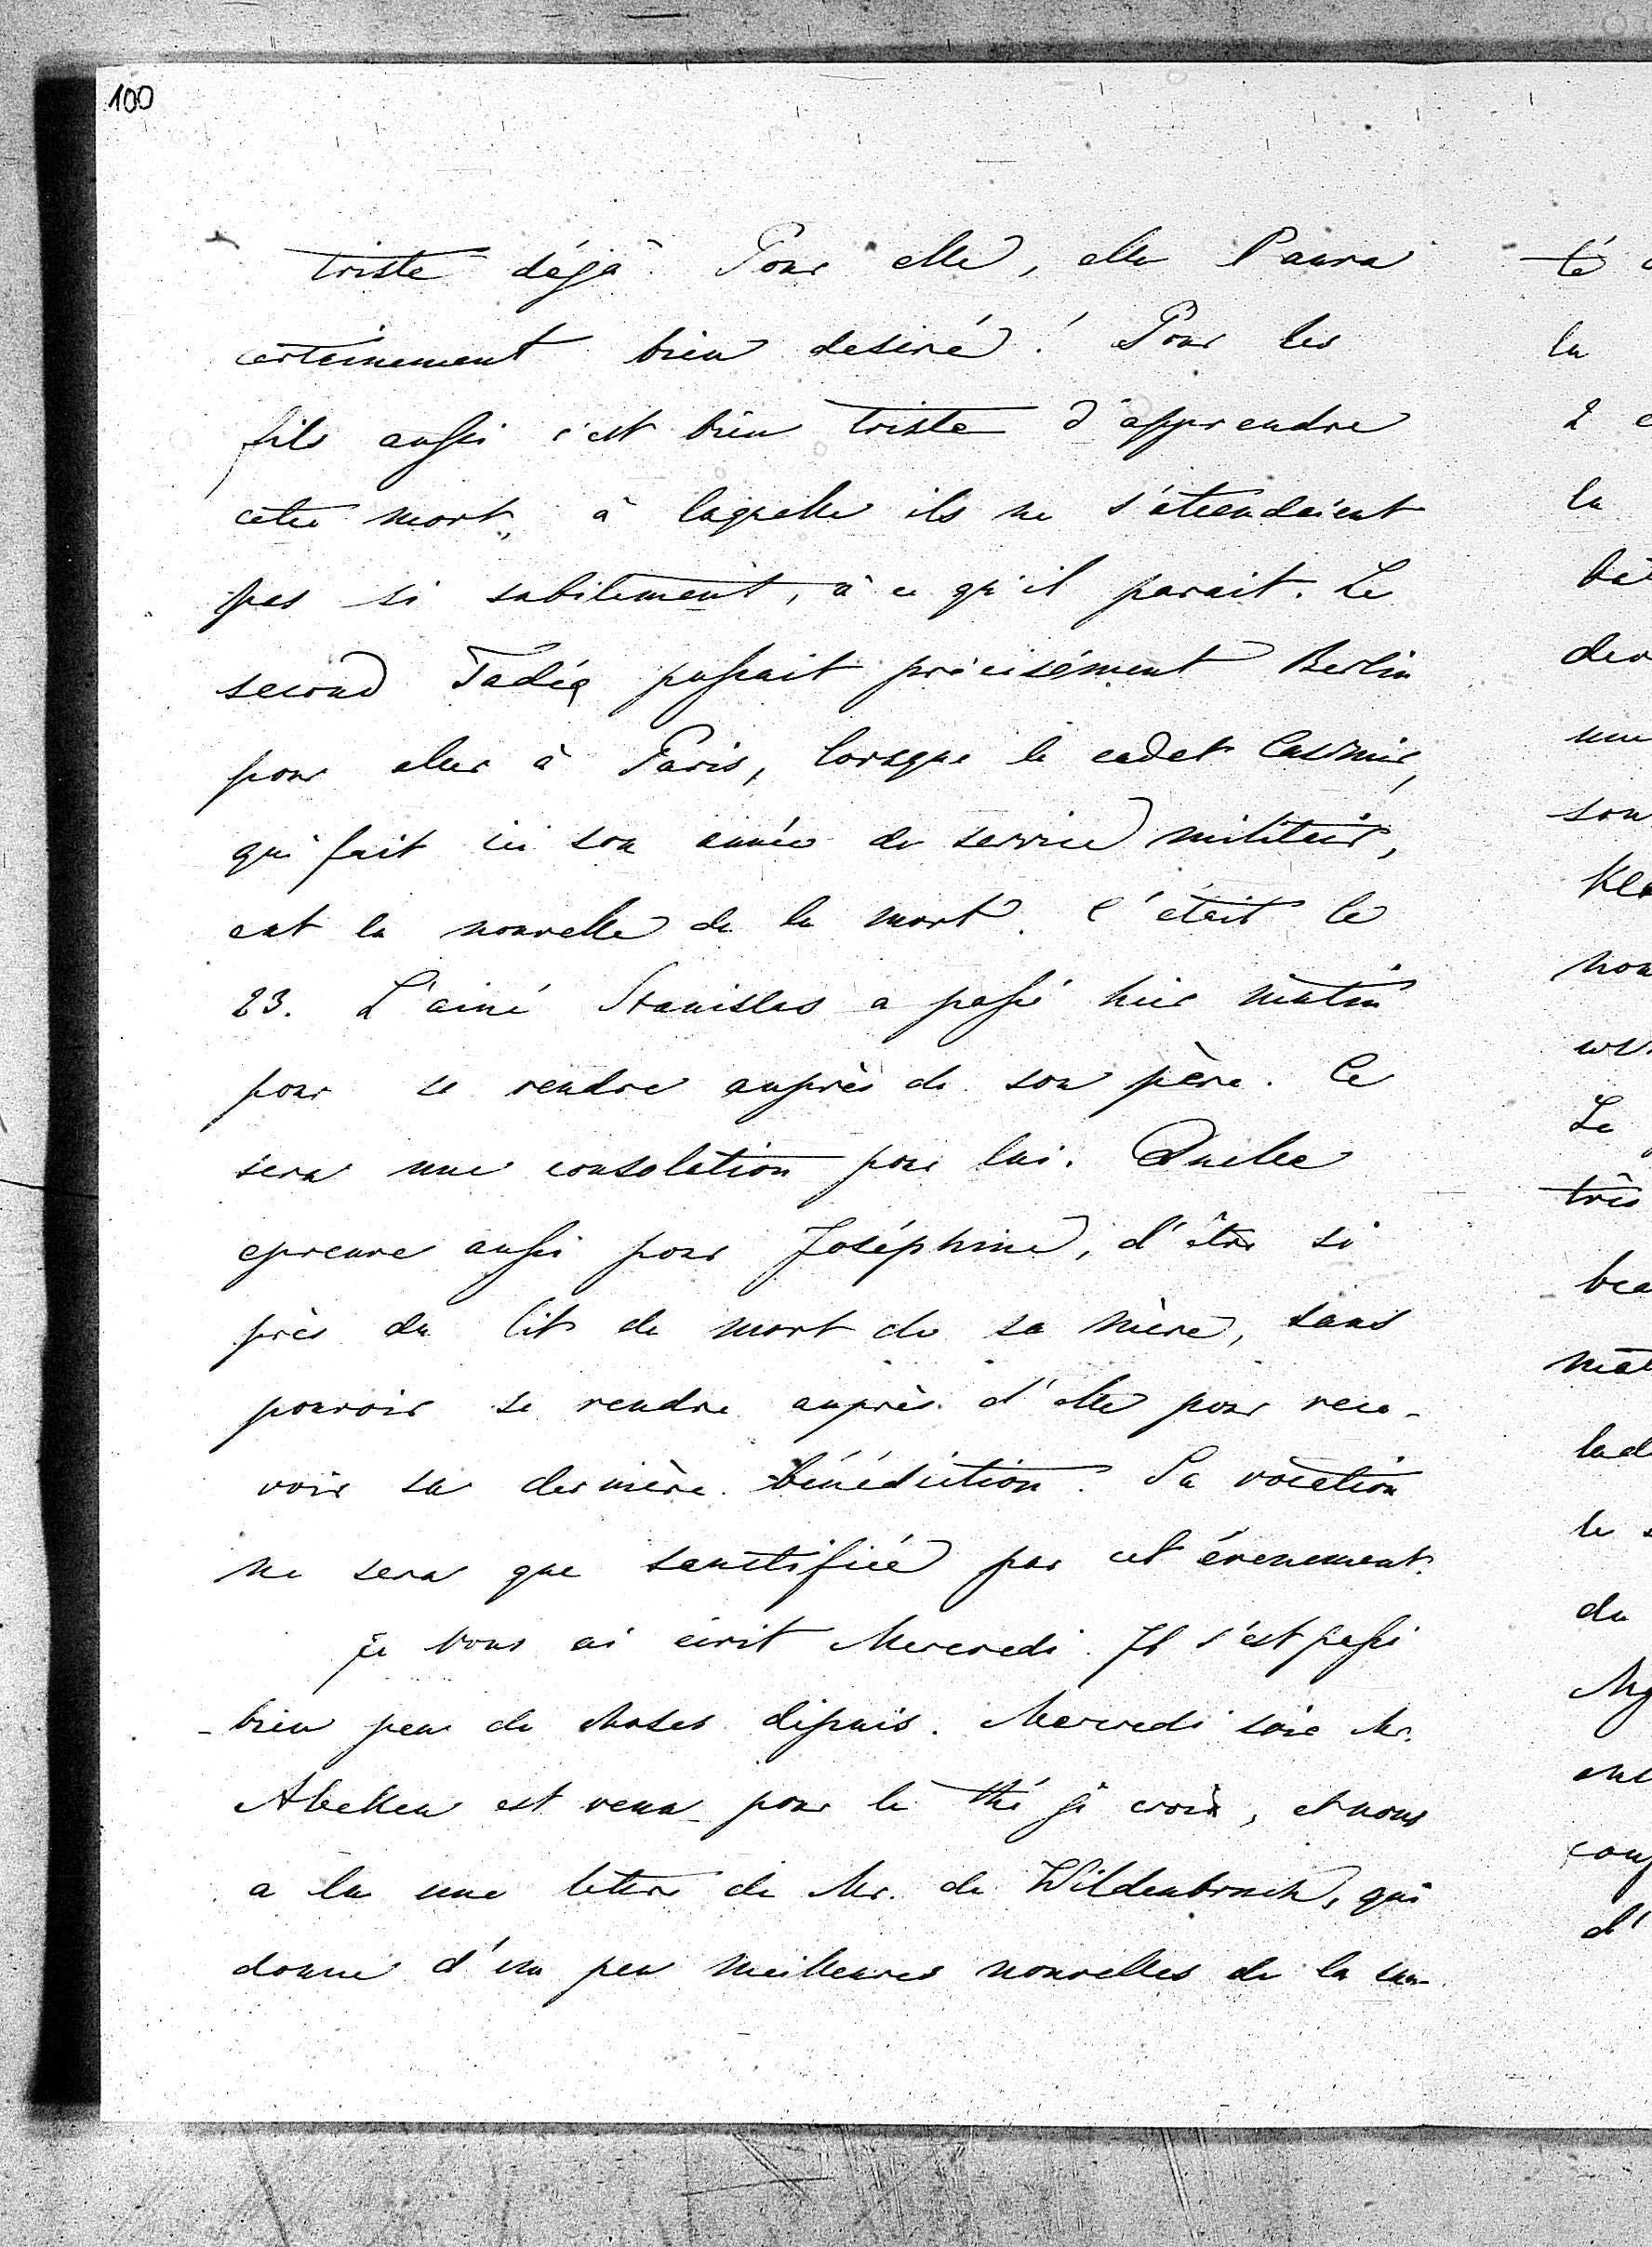 100
triste déjà. Pour elle, elle l'aura
certainement bien desiré! Pour les
fils aussi c'est bien triste d'apprendre
cette mort, à laquelle ils ne s'attendaient
pas si subitement, à ce qu'il parait. Le
second Tadée passait précisément Berlin
pour aller à Paris, lorsque le cadet Casimir,
qui fait ici son année de service militair,
eut la nouvelle de la mort. C'était le
23. L'ainé Stanislas a passé hier matin
pour se rendre auprès de son père. Ce
sera une consolation pour lui. Quelle
epreuve aussi pour Joséphine, d'être si
près du lit de mort de sa mère, sans
pouvoir se rendre auprès d'elle pour rece-
voir sa dernière bénédiction. Sa vocation
ne sera que sanctifiée par cet évenement.
je vous ai écrit Mercredi. Il s'est passé
bien peu de choses depuis. Mercredi soir Mr.
Abeken est venu pour le thé je crois, et nous
a lu une lettre de Mr. de Wildenbruch, qui
donne d'un peu meilleures nouvelles de la
té
la
2
la
son
Le
très
le
du
d'